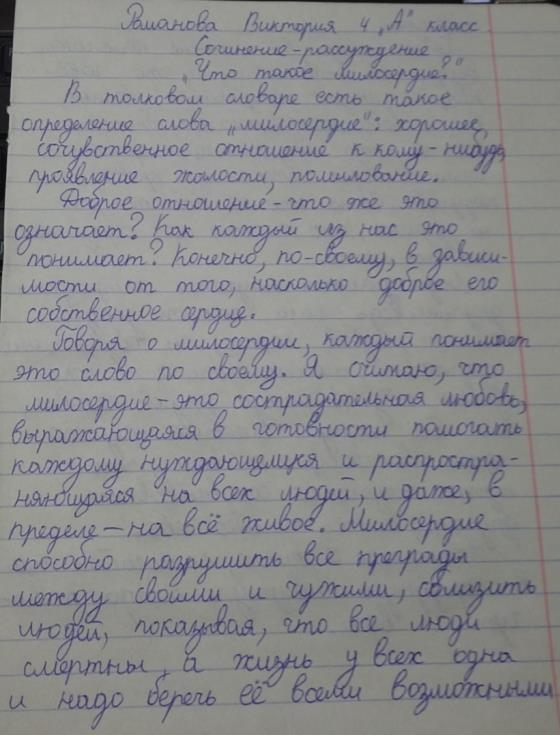 Романова Виктория 4 „А" класс
Сочинение-рассуждение
„Что такое милосердие?"
В толковом словаре есть такое
определение слова „милосердие": хорошее,
сочувственное отношение к кому-нибудь,
проявление жалости, помилование.
Доброе отношение-что же это
означает? Как каждый из нас это
понимает? Конечно, по-своему, в зависи-
мости от того, насколько доброе его
собственное сердце.
Говоря о милосердии, каждый понимает
это слово по своему. Я считаю, что
милосердие-это сострадательная любовь,
выражающаяся в готовности помогать
каждому нуждающемуся и распростра-
няющаяся на всех людей, и даже, в
пределе-на всё живое. Милосердие
способно разрушить все преграды
между своими и чужими, сблизить
людей, показывая, что все люди
смертны, а жизнь у всех одна
и надо беречь её всеми возможными